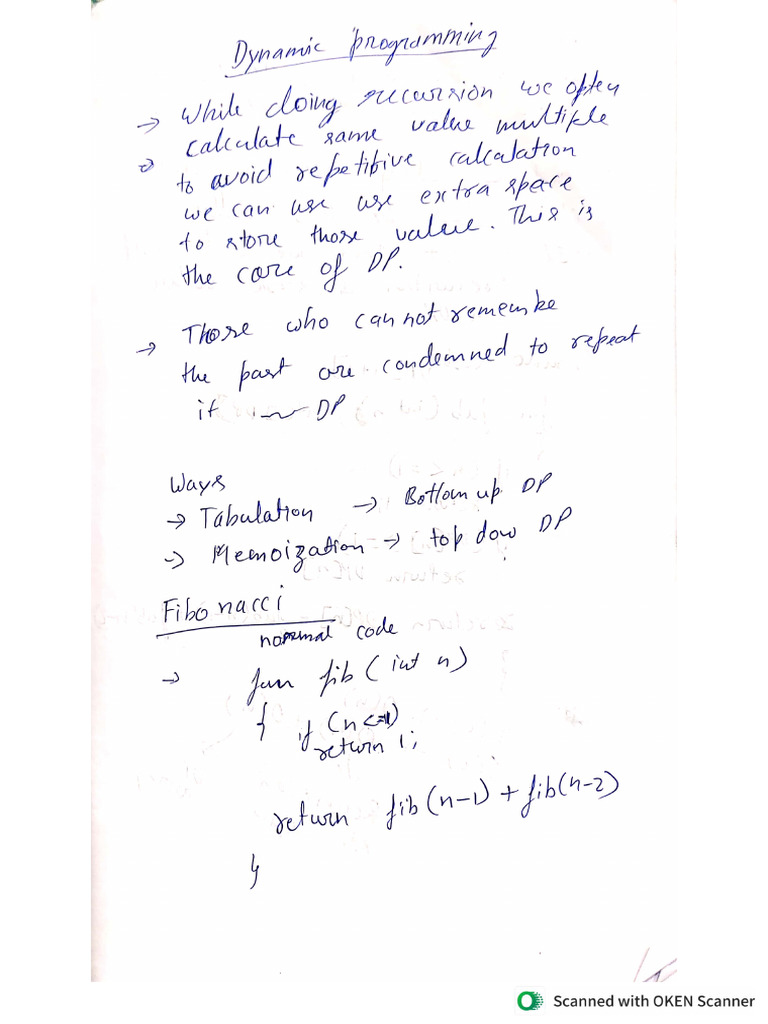 Dynamic programming
→ While doing recursion we often
calculate same value multiple
→ to avoid repetitive calculation
we can use use extra space
to store those value. This is
the core of DP.
→ Those who can not remembe
the past are condemned to repeat
it ~ DP
Ways
→ Tabulation → Bottom up DP
→ Memoization → top dow DP
Fibonacci
normal code
→ fun fib (int n)
{ if (n<=1)
return 1;
return fib(n-1) + fib(n-2)
}
Scanned with OKEN Scanner